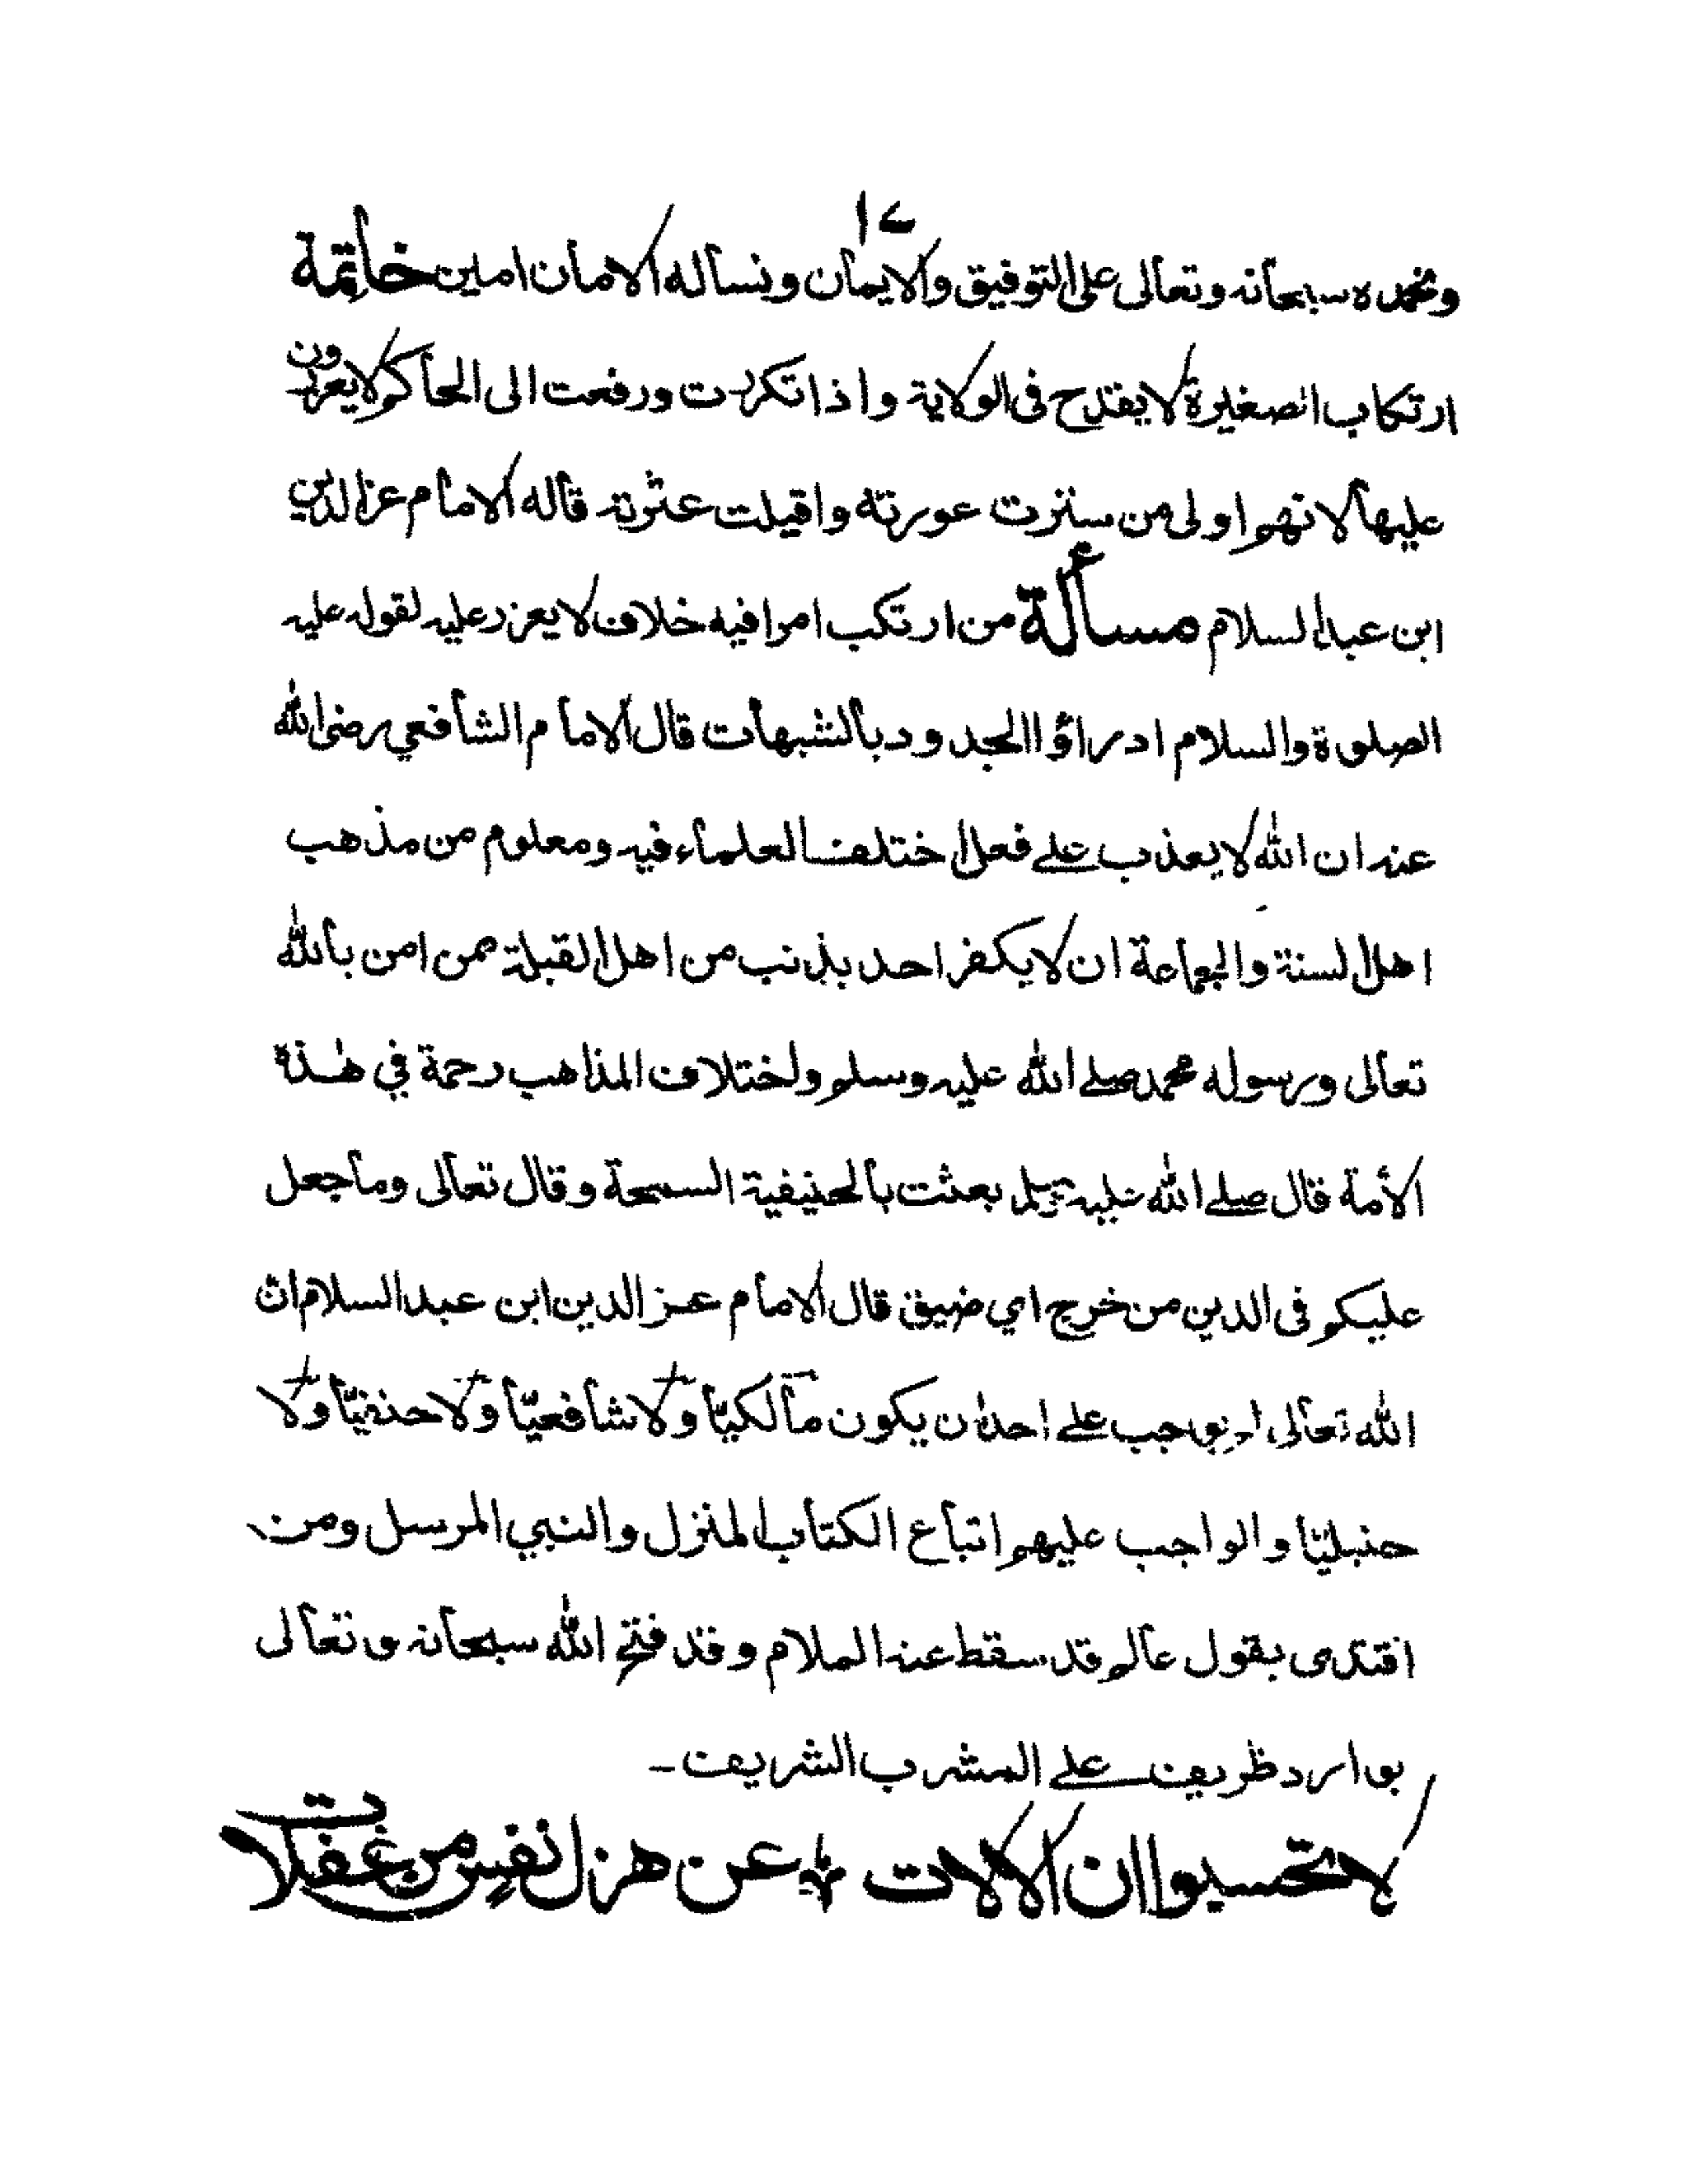 ١٤
ونحمده سبحانه وتعالى على التوفيق والايمان ونسأله الامان امين خاتمة
ارتكاب الصغيرة لا يقدح فى الولاية واذا تكررت ورفعت الى الحاكم لا يعزرون
عليها لانهم اولى من سترت عورته واقيلت عثرته قاله الامام عز الدين
ابن عبد السلام مسألة من ارتكب امرا فيه خلاف لا يعزر عليه لقوله عليه
الصلوة والسلام ادراؤا الحدود بالشبهات قال الامام الشافعي رضى الله
عنه ان الله لا يعذب على فعل اختلف العلماء فيه ومعلوم من مذهب
اهل السنة والجماعة ان لا يكفر احد بذنب من اهل القبلة ممن امن بالله
تعالى ورسوله محمد صلے الله عليه وسلم ولختلاف المذاهب رحمة في هٰذة
الأمة قال صلے الله عليه وسلم بعثت بالحنيفية السمحة وقال تعالى وما جعل
عليكم فى الدين من خرج اي ضيق قال الامام عز الدين ابن عبد السلام ان
الله تعالى لم يوجب علے احد ان يكون مالكيّا ولا شافعيّا ولا حنفيّا ولا
حنبليّا والواجب عليهم اتباع الكتاب المنزل والنبي المرسل ومن
اقتدى بقول عالم قد سقط عنه الملام وقد فتح الله سبحانه وتعالى
بوارد ظريف علے المشرب الشريف
لا تحسبوا ان الالات عن هزل نفس من غفلات